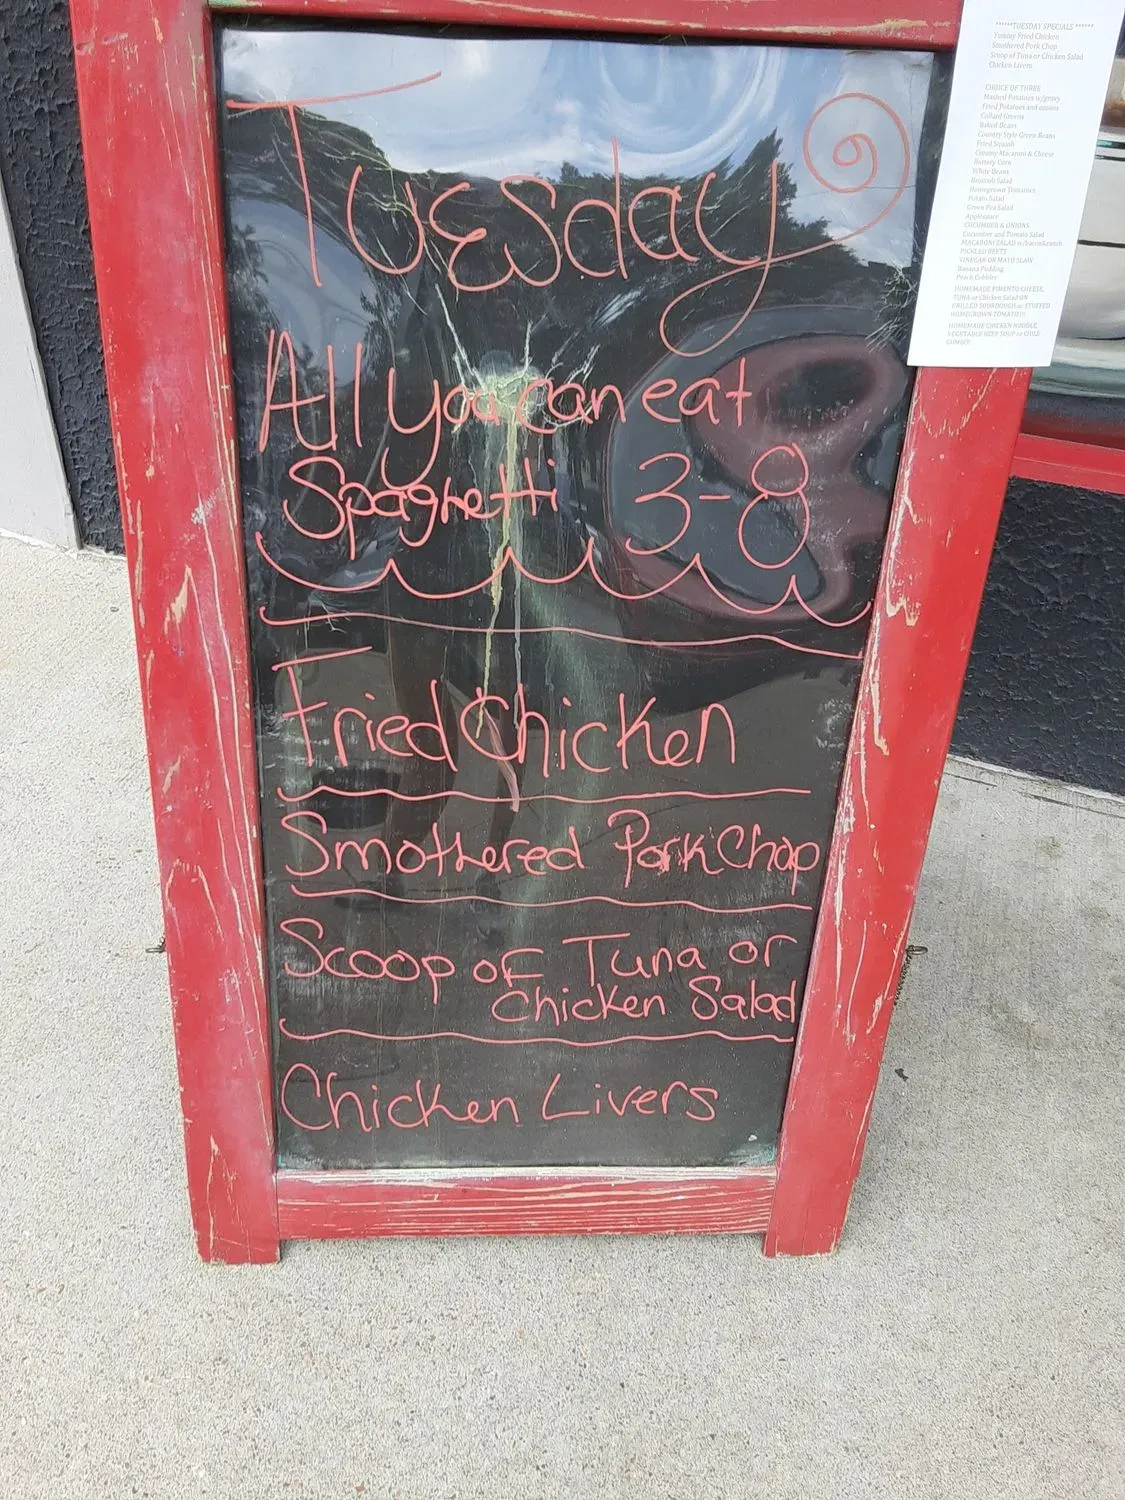 Tuesday
All you can eat
Spaghetti 3-8
Fried Chicken
Smothered Pork Chop
Scoop of Tuna or
Chicken Salad
Chicken Livers
******TUESDAY SPECIALS ******
Yummy Fried Chicken
Smothered Pork Chop
Scoop of Tuna or Chicken Salad
Chicken Livers
CHOICE OF THREE
Mashed Potatoes w/gravy
Fried Potatoes and onions
Collard Greens
Baked Beans
Country Style Green Beans
Fried Squash
Creamy Macaroni & Cheese
Buttery Corn
White Beans
Broccoli Salad
Homegrown Tomatoes
Potato Salad
Green Pea Salad
Applesauce
CUCUMBER & ONIONS
Cucumber and Tomato Salad
MACARONI SALAD w/bacon&ranch
PICKLED BEETS
VINEGAR OR MAYO SLAW
Banana Pudding
Peach Cobbler
HOMEMADE PIMENTO CHEESE,
TUNA or Chicken Salad ON
GRILLED SOURDOUGH or STUFFED
HOMEGROWN TOMATO!!!
HOMEMADE CHICKEN NOODLE,
VEGETABLE BEEF SOUP or CHILI
GUMBO